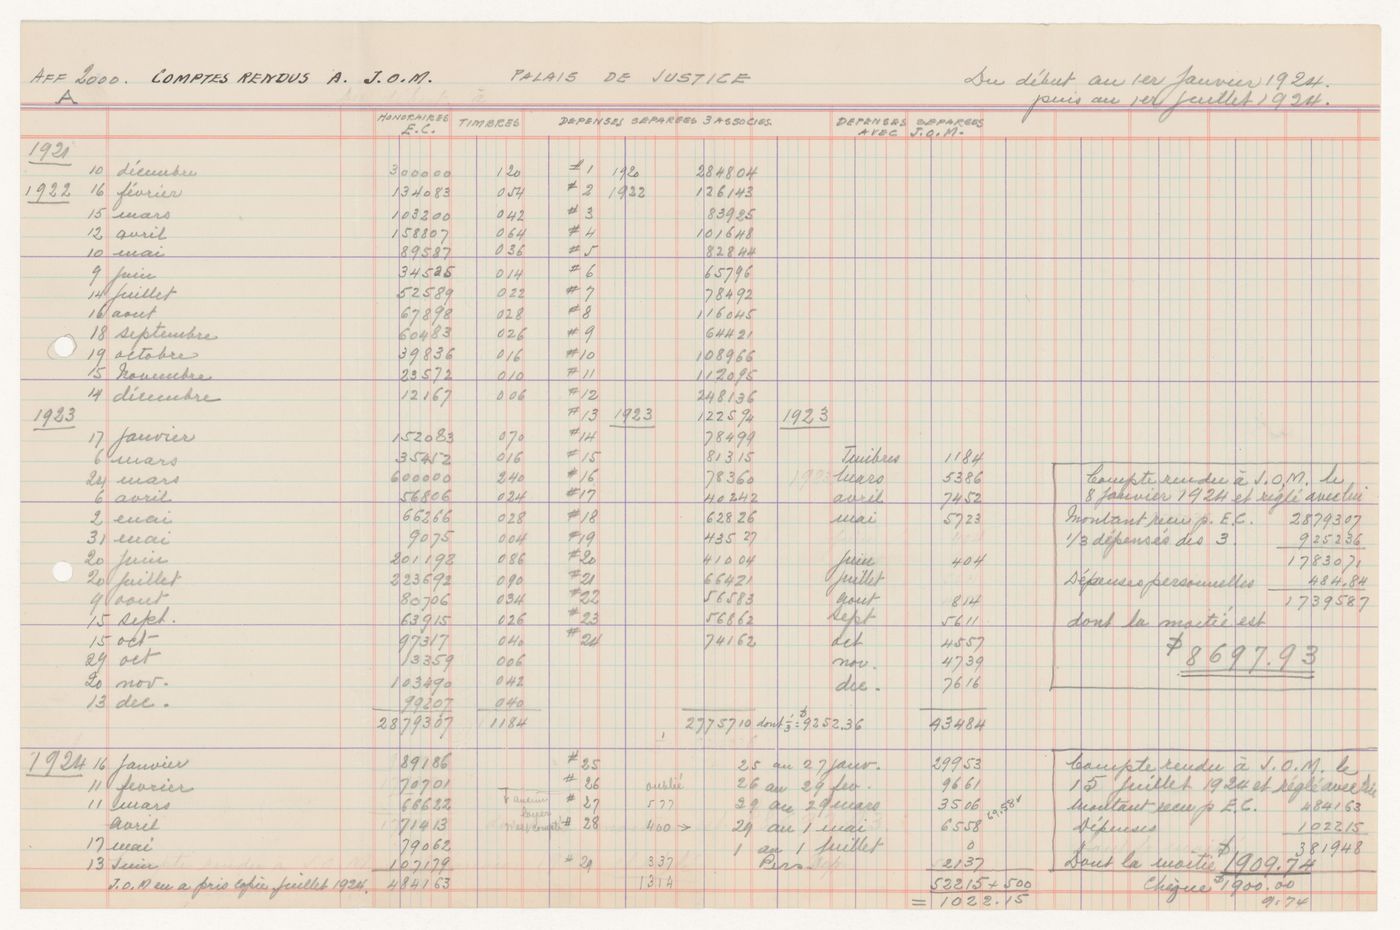 AFF 2000. COMPTES RENDUS A. J.O.M. PALAIS DE JUSTICE Du début au 1er Janvier 1924.
A puis au 1er Juillet 1924.
HONORAIRES E.C. TIMBRES DEPENSES SEPAREES 3 ASSOCIES. DEPENSES SEPAREES AVEC J.O.M.
1921
10 décembre 300000 120 #1 1920 284804
1922 16 février 134083 054 #2 1922 126143
15 mars 103200 042 #3 83925
12 avril 158807 064 #4 101648
10 mai 89587 036 #5 82844
9 Juin 34525 014 #6 65796
14 Juillet 52589 022 #7 78492
16 aout 67898 028 #8 116045
18 septembre 60483 026 #9 64421
19 octobre 39836 016 #10 108966
15 Novembre 23572 010 #11 112095
14 décembre 12167 006 #12 248136
1923 #13 1923 122594 1923
17 Janvier 152083 070 #14 78499
6 mars 35452 016 #15 81315 Timbres 1184
24 mars 600000 240 #16 78360 1923 Mars 5386
6 avril 56806 024 #17 40242 avril 7452
2 mai 66266 028 #18 62826 mai 5723
31 mai 9075 004 #19 43527
20 Juin 201198 086 #20 41004 Juin 404
20 Juillet 223692 090 #21 66421 Juillet
9 aout 80706 034 #22 56583 aout 814
15 sept. 63915 026 #23 56862 sept 5611
15 oct 97317 040 #24 74162 oct 4557
29 oct 13359 006 nov. 4739
20 nov. 103490 042 dec. 7616
13 dec. 99207 040
2879307 1184 2775710 dont 1/3 = $9252.36 43484
Compte rendu à J.O.M. le
8 Janvier 1924 et réglé avec lui
Montant recu p. E.C. 2879307
1/3 dépenses des 3. 925236
1783071
Dépenses personnelles 484.84
1739587
dont la moitié est
$8697.93
1924 16 Janvier 89186 #25 25 au 27 Janv. 29953
11 février 70701 #26 oublié 26 au 29 fev. 9661
11 mars 66622 #27 577 29 au 29 mars 3506 69.58
avril 71413 #28 400 → 29 au 1 mai 6558
17 mai 79062 1 au 1 Juillet 0
13 Juin 107179 #29 337 Pers. 52137
J.O.M en a pris copie Juillet 1924. 484163 1314 52215 + 500
= 1022.15
Compte rendu à J.O.M. le
15 Juillet 1924 et réglé avec lui
montant recu p E.C. 484163
Dépenses 102215
381948
Dont la moitié $1909.74
Chèque $1900.00
9.74